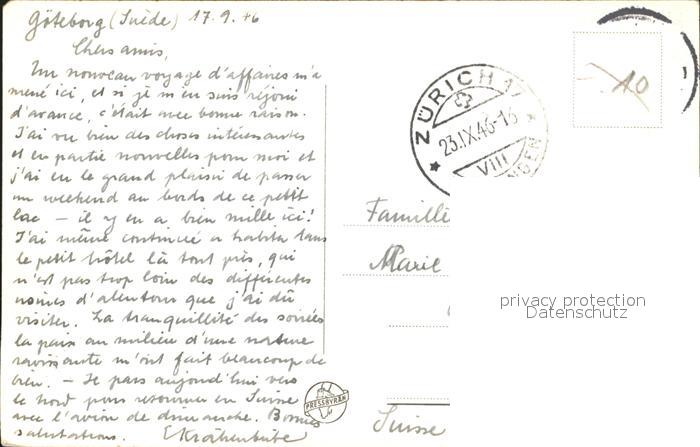 Göteborg (Suède) 17.9.46
Chers amis,
Un nouveau voyage d'affaires m'a
mené ici, et si je m'en suis réjoui
d'avance, c'était avec bonne raison.
J'ai vu bien des choses intéressantes
et en partie nouvelles pour moi et
j'ai eu le grand plaisir de passer
un weekend au bords de ce petit
lac – il y en a bien mille ici!
J'ai même continué a habiter dans
le petit hôtel là tout près, qui
n'est pas trop loin des différentes
usines d'alentour que j'ai dû
visiter. La tranquillité des soirées
la paix au milieu d'une nature
ravissante m'ont fait beaucoup de
bien. – Je pars aujourd'hui vers
le nord pour retourner en Suisse
avec l'avion de dimanche. Bonnes
salutations.
ZÜRICH 1
23.IX.46-16
VIII
10
Famille
Marie
Suisse
PRESSBYRÅN
privacy protection
Datenschutz